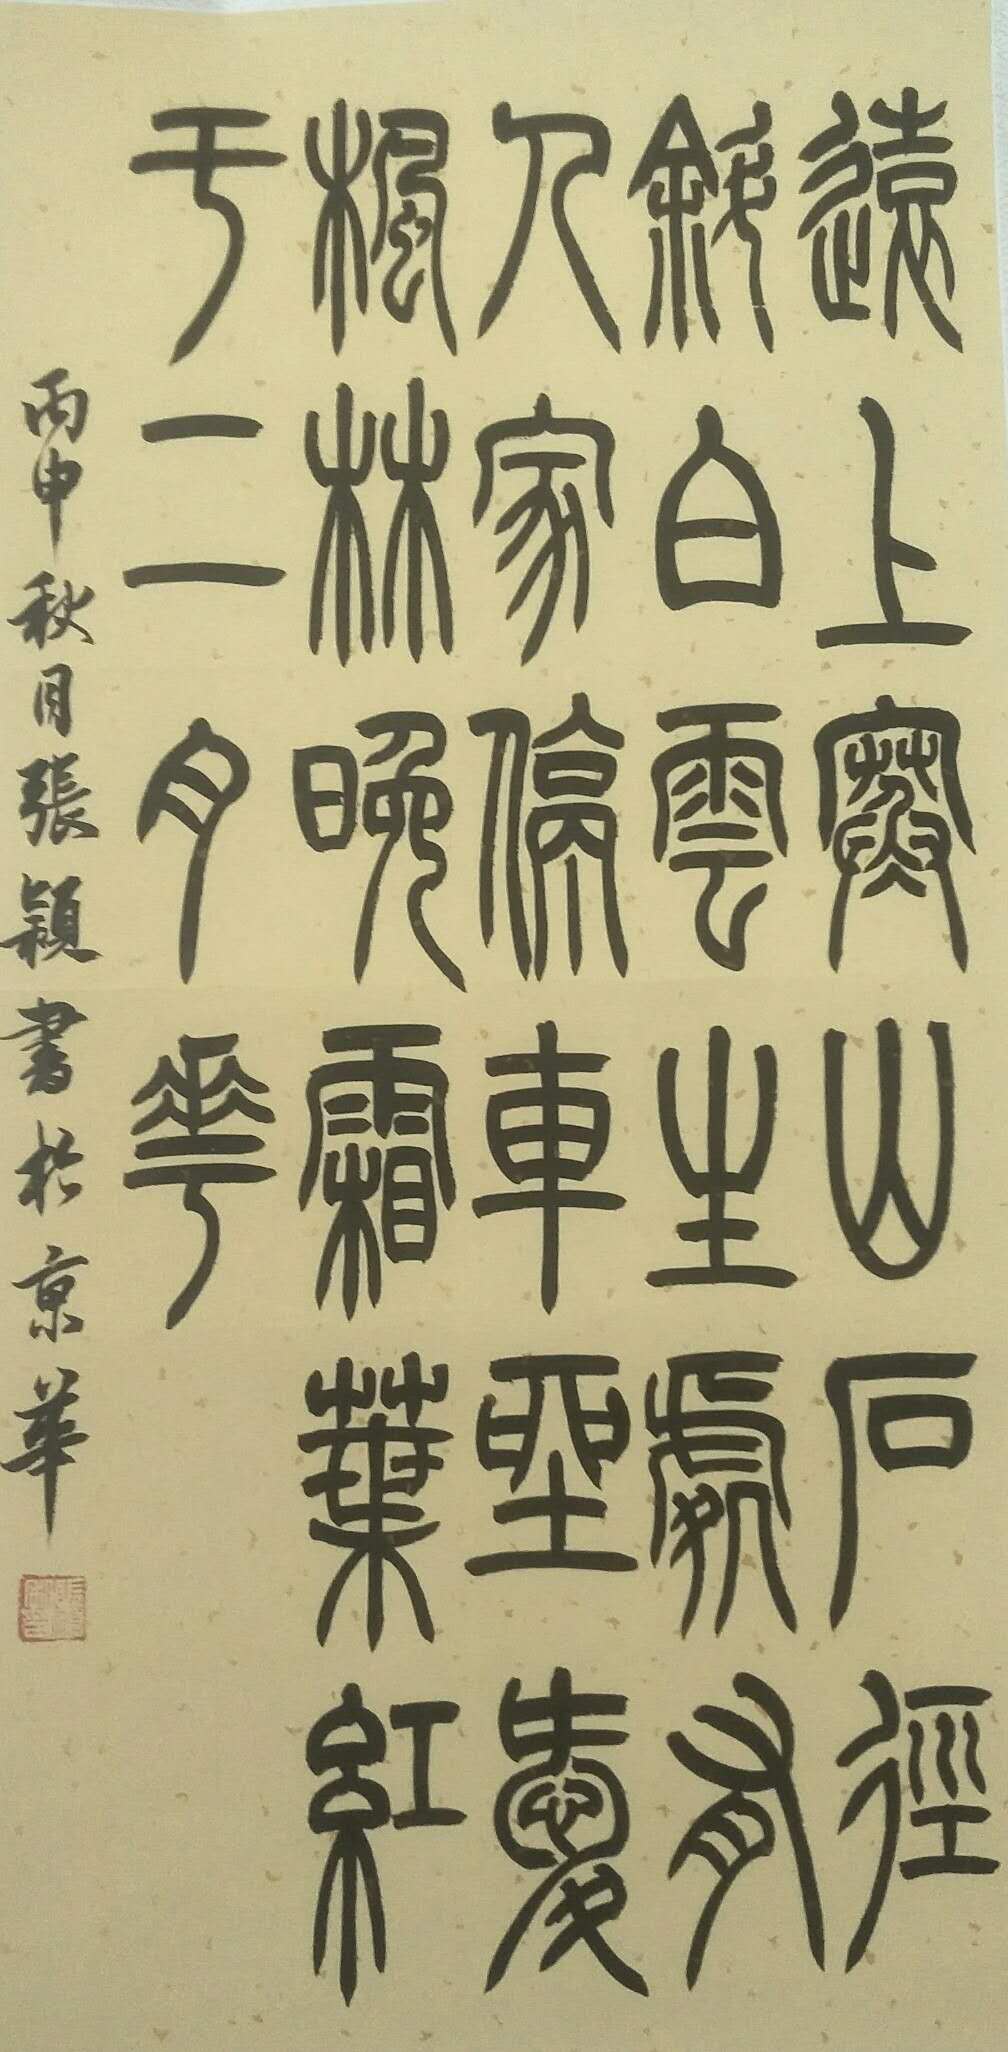 遠上寒山石徑
斜白雲生處有
人家停車坐愛
楓林晚霜葉紅
于二月花
丙申秋月張穎書於京華